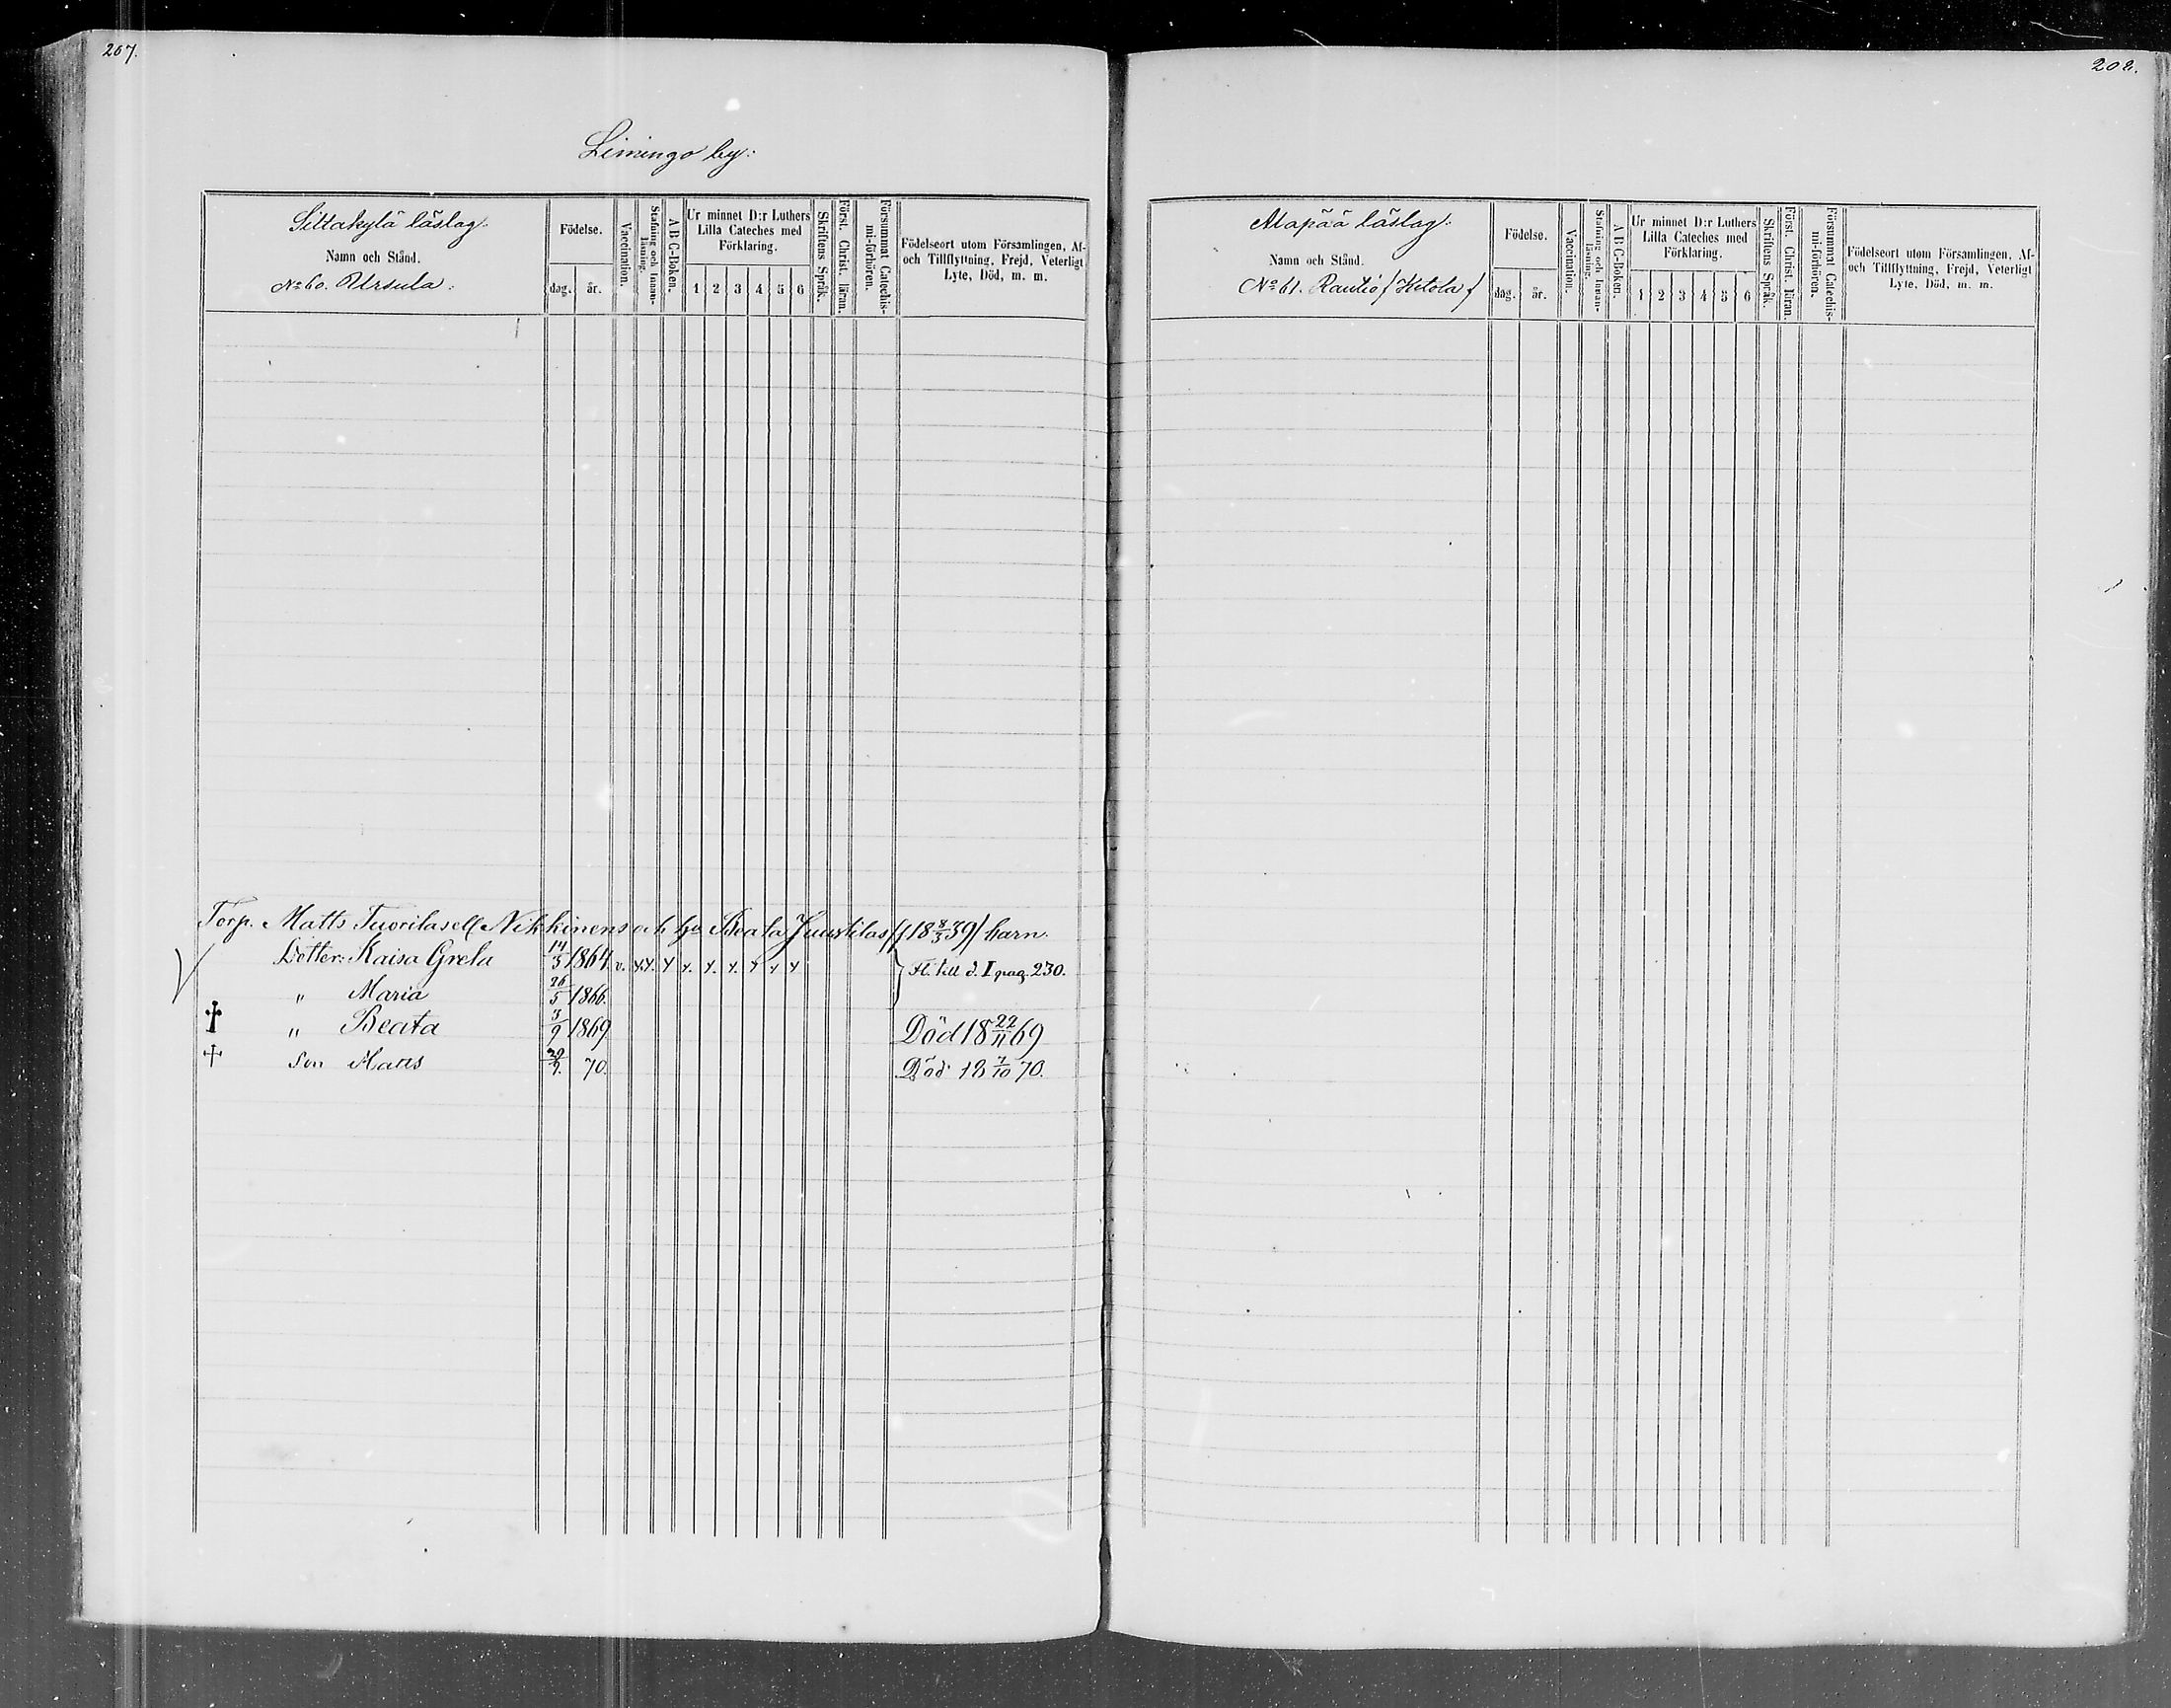 207.
Limingo by:
Sittakylä läslag.
Namn och Stånd.
No 60. Ursula.
Födelse.
dag. år.
Vaccination.
Stafning och Innan-läsning.
A B C-Boken.
Ur minnet D:r Luthers
Lilla Cateches med
Förklaring.
1 2 3 4 5 6
Skriftens Språk.
Först. Christ. läran.
Försummat Catechis-mi-förhören.
Födelseort utom Församlingen, Af-
och Tillflyttning, Frejd, Veterligt
Lyte, Död, m. m.
Torp. Matts Tuorilasell Nikkinens och hu Beata Juustilas (f 18 8/3 39) barn.
Dotter: Kaisa Greta 14/5 1864. v. Fl. till d. I pag. 230.
" Maria 26/5 1866.
" Beata 3/9 1869 Död 18 22/11 69
Son Matts 29/9. 70. Död 18 7/10 70.
208.
Alapää läslag.
Namn och Stånd.
No 61. Rautio / Hetola /
Födelse.
dag. år.
Vaccination.
Stafning och Innan-läsning.
A B C-Boken.
Ur minnet D:r Luthers
Lilla Cateches med
Förklaring.
1 2 3 4 5 6
Skriftens Språk.
Först. Christ. läran.
Försummat Catechis-mi-förhören.
Födelseort utom Församlingen, Af-
och Tillflyttning, Frejd, Veterligt
Lyte, Död, m. m.